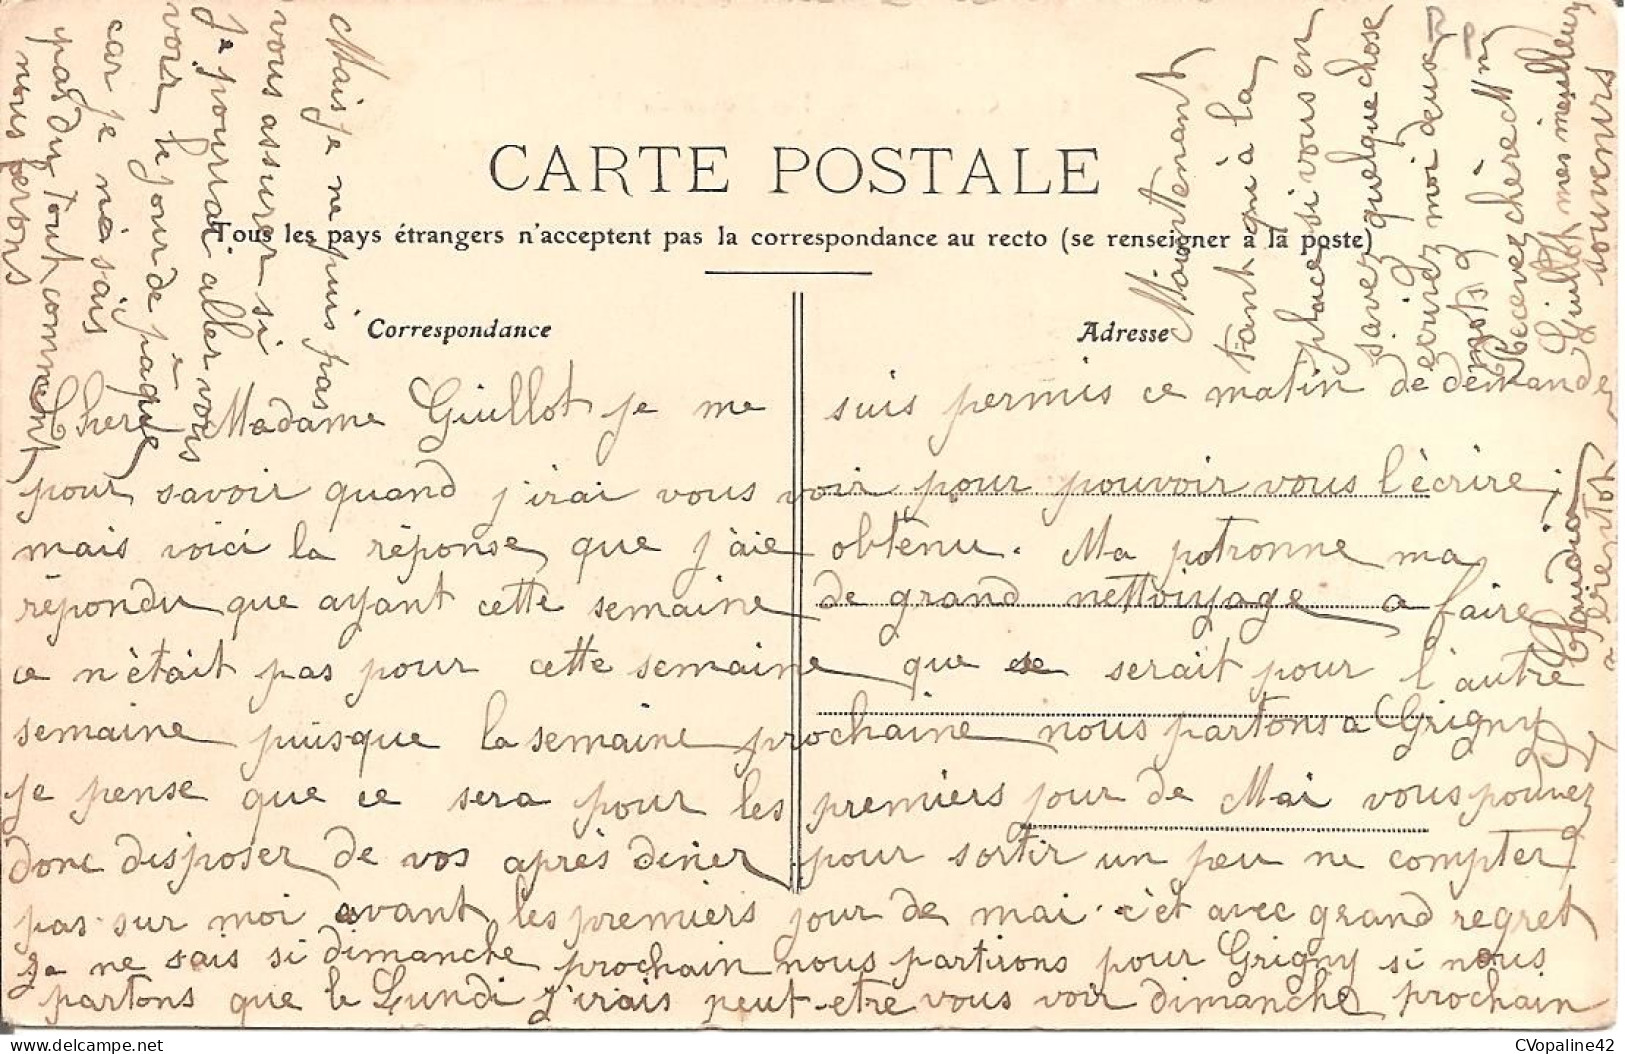 CARTE POSTALE
Tous les pays étrangers n'acceptent pas la correspondance au recto (se renseigner à la poste)
Correspondance
Adresse
Chère Madame Guillot je me suis permis ce matin de demander
pour savoir quand j'irai vous voir pour pouvoir vous l'écrire,
mais voici la réponse que j'aie obtenu. Ma patronne ma
répondu que ayant cette semaine de grand nettoiyage a faire
ce n'était pas pour cette semaine que se serait pour l'autre
semaine puisque la semaine prochaine nous partons a Grigny
je pense que ce sera pour les premiers jour de Mai vous pouvez
donc disposer de vos après diner pour sortir un peu ne compter
pas sur moi avant les premiers jour de mai. c'èt avec grand regret
Je ne sais si dimanche prochain nous partirons pour Grigny si nous
partons que le Lundi j'irais peut-etre vous voir dimanche prochain
Mais je ne puis pas
vous assurer si
je pourrai aller vous
voir le jour de pàque
car je ne sais
pas du tout comment
nous ferons
Maintenant
tant qu'à la
place si vous en
savez quelque chose
ecrivez moi deux
mots
Recevez chère Mme
Guillot mes meilleurs
souvenirs
Claudia